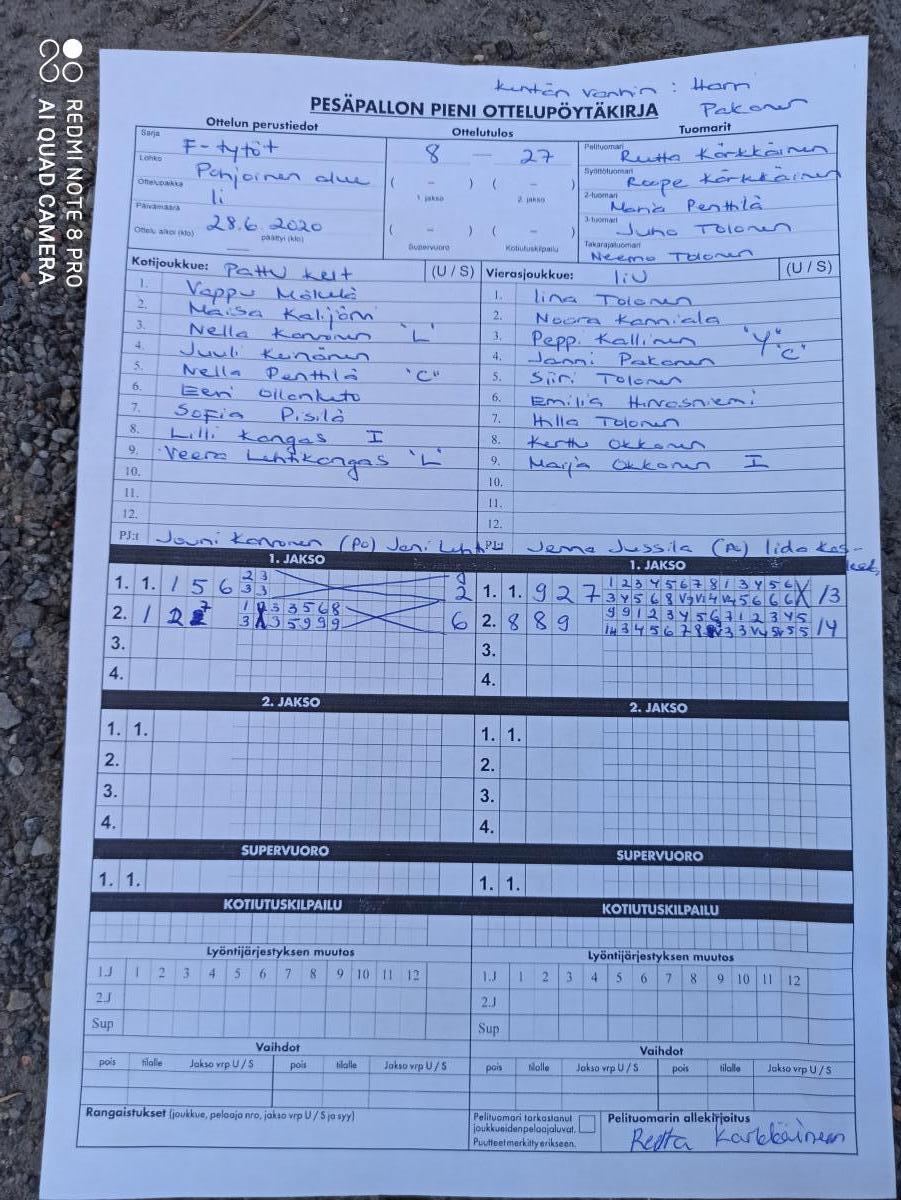 Kentän vanhin : Harri
Pakonen
PESÄPALLON PIENI OTTELUPÖYTÄKIRJA
Ottelun perustiedot Ottelutulos Tuomarit
Sarja F-tytöt 8 — 27 Pelituomari Reetta Kärkkäinen
Lohko Pohjoinen alue Syöttötuomari Roope Kärkkäinen
Ottelupaikka Ii ( - ) ( - ) 2-tuomari Penttilä
1. jakso 2. jakso
Päivämäärä 28.6.2020 3-tuomari Juho Tolonen
Ottelu alkoi (klo) päättyi (klo) ( - ) ( - ) Takarajatuomari Neemo Tolonen
Supervuoro Kotiutuskilpailu
Kotijoukkue: Pattu keit (U / S) Vierasjoukkue: IiU (U / S)
1. Vappu Mäkelä 1. Iina Tolonen
2. Maisa 2. Noora Kanniala
3. Nella "L" 3. Peppi Kallinen "Y"
4. Juuli Keinänen 4. Janni Pakonen "C"
5. Nella Penttilä "C" 5. Siiri Tolonen
6. Eeri Ollonketo 6. Emilia Hirvasniemi
7. Sofia Pisilä 7. Hilla Tolonen
8. Lilli Kangas I 8. Kerttu Okkonen
9. Veera Lehtikangas "L" 9. Marja Okkonen I
10. 10.
11. 11.
12. 12.
PJ:t Jouni (PO) Jani PJ:t Jenna Jussila Iida
1. JAKSO 1. JAKSO
1. 1. 1 5 6 2 3 2 1. 1. 9 2 7 1 2 3 4 5 6 7 8 1 3 4 5 6 X /3
3 3
2. 1 2 6 2. 8 8 9 9 9 1 2 3 4 5 6 7 1 2 3 4 5 /4
3. 3.
4. 4.
2. JAKSO 2. JAKSO
1. 1. 1. 1.
2. 2.
3. 3.
4. 4.
SUPERVUORO SUPERVUORO
1. 1. 1. 1.
KOTIUTUSKILPAILU KOTIUTUSKILPAILU
Lyöntijärjestyksen muutos Lyöntijärjestyksen muutos
1.J 1 2 3 4 5 6 7 8 9 10 11 12 1.J 1 2 3 4 5 6 7 8 9 10 11 12
2.J 2.J
Sup Sup
Vaihdot Vaihdot
pois tilalle Jakso vrp U / S pois tilalle Jakso vrp U / S pois tilalle Jakso vrp U / S pois tilalle Jakso vrp U / S
Rangaistukset (joukkue, pelaaja nro, jakso vrp U / S ja syy) Pelituomari tarkastanut Pelituomarin allekirjoitus
joukkueiden pelaajaluvat.
Puutteet merkitty erikseen. Reetta Kärkkäinen
REDMI NOTE 8 PRO
AI QUAD CAMERA